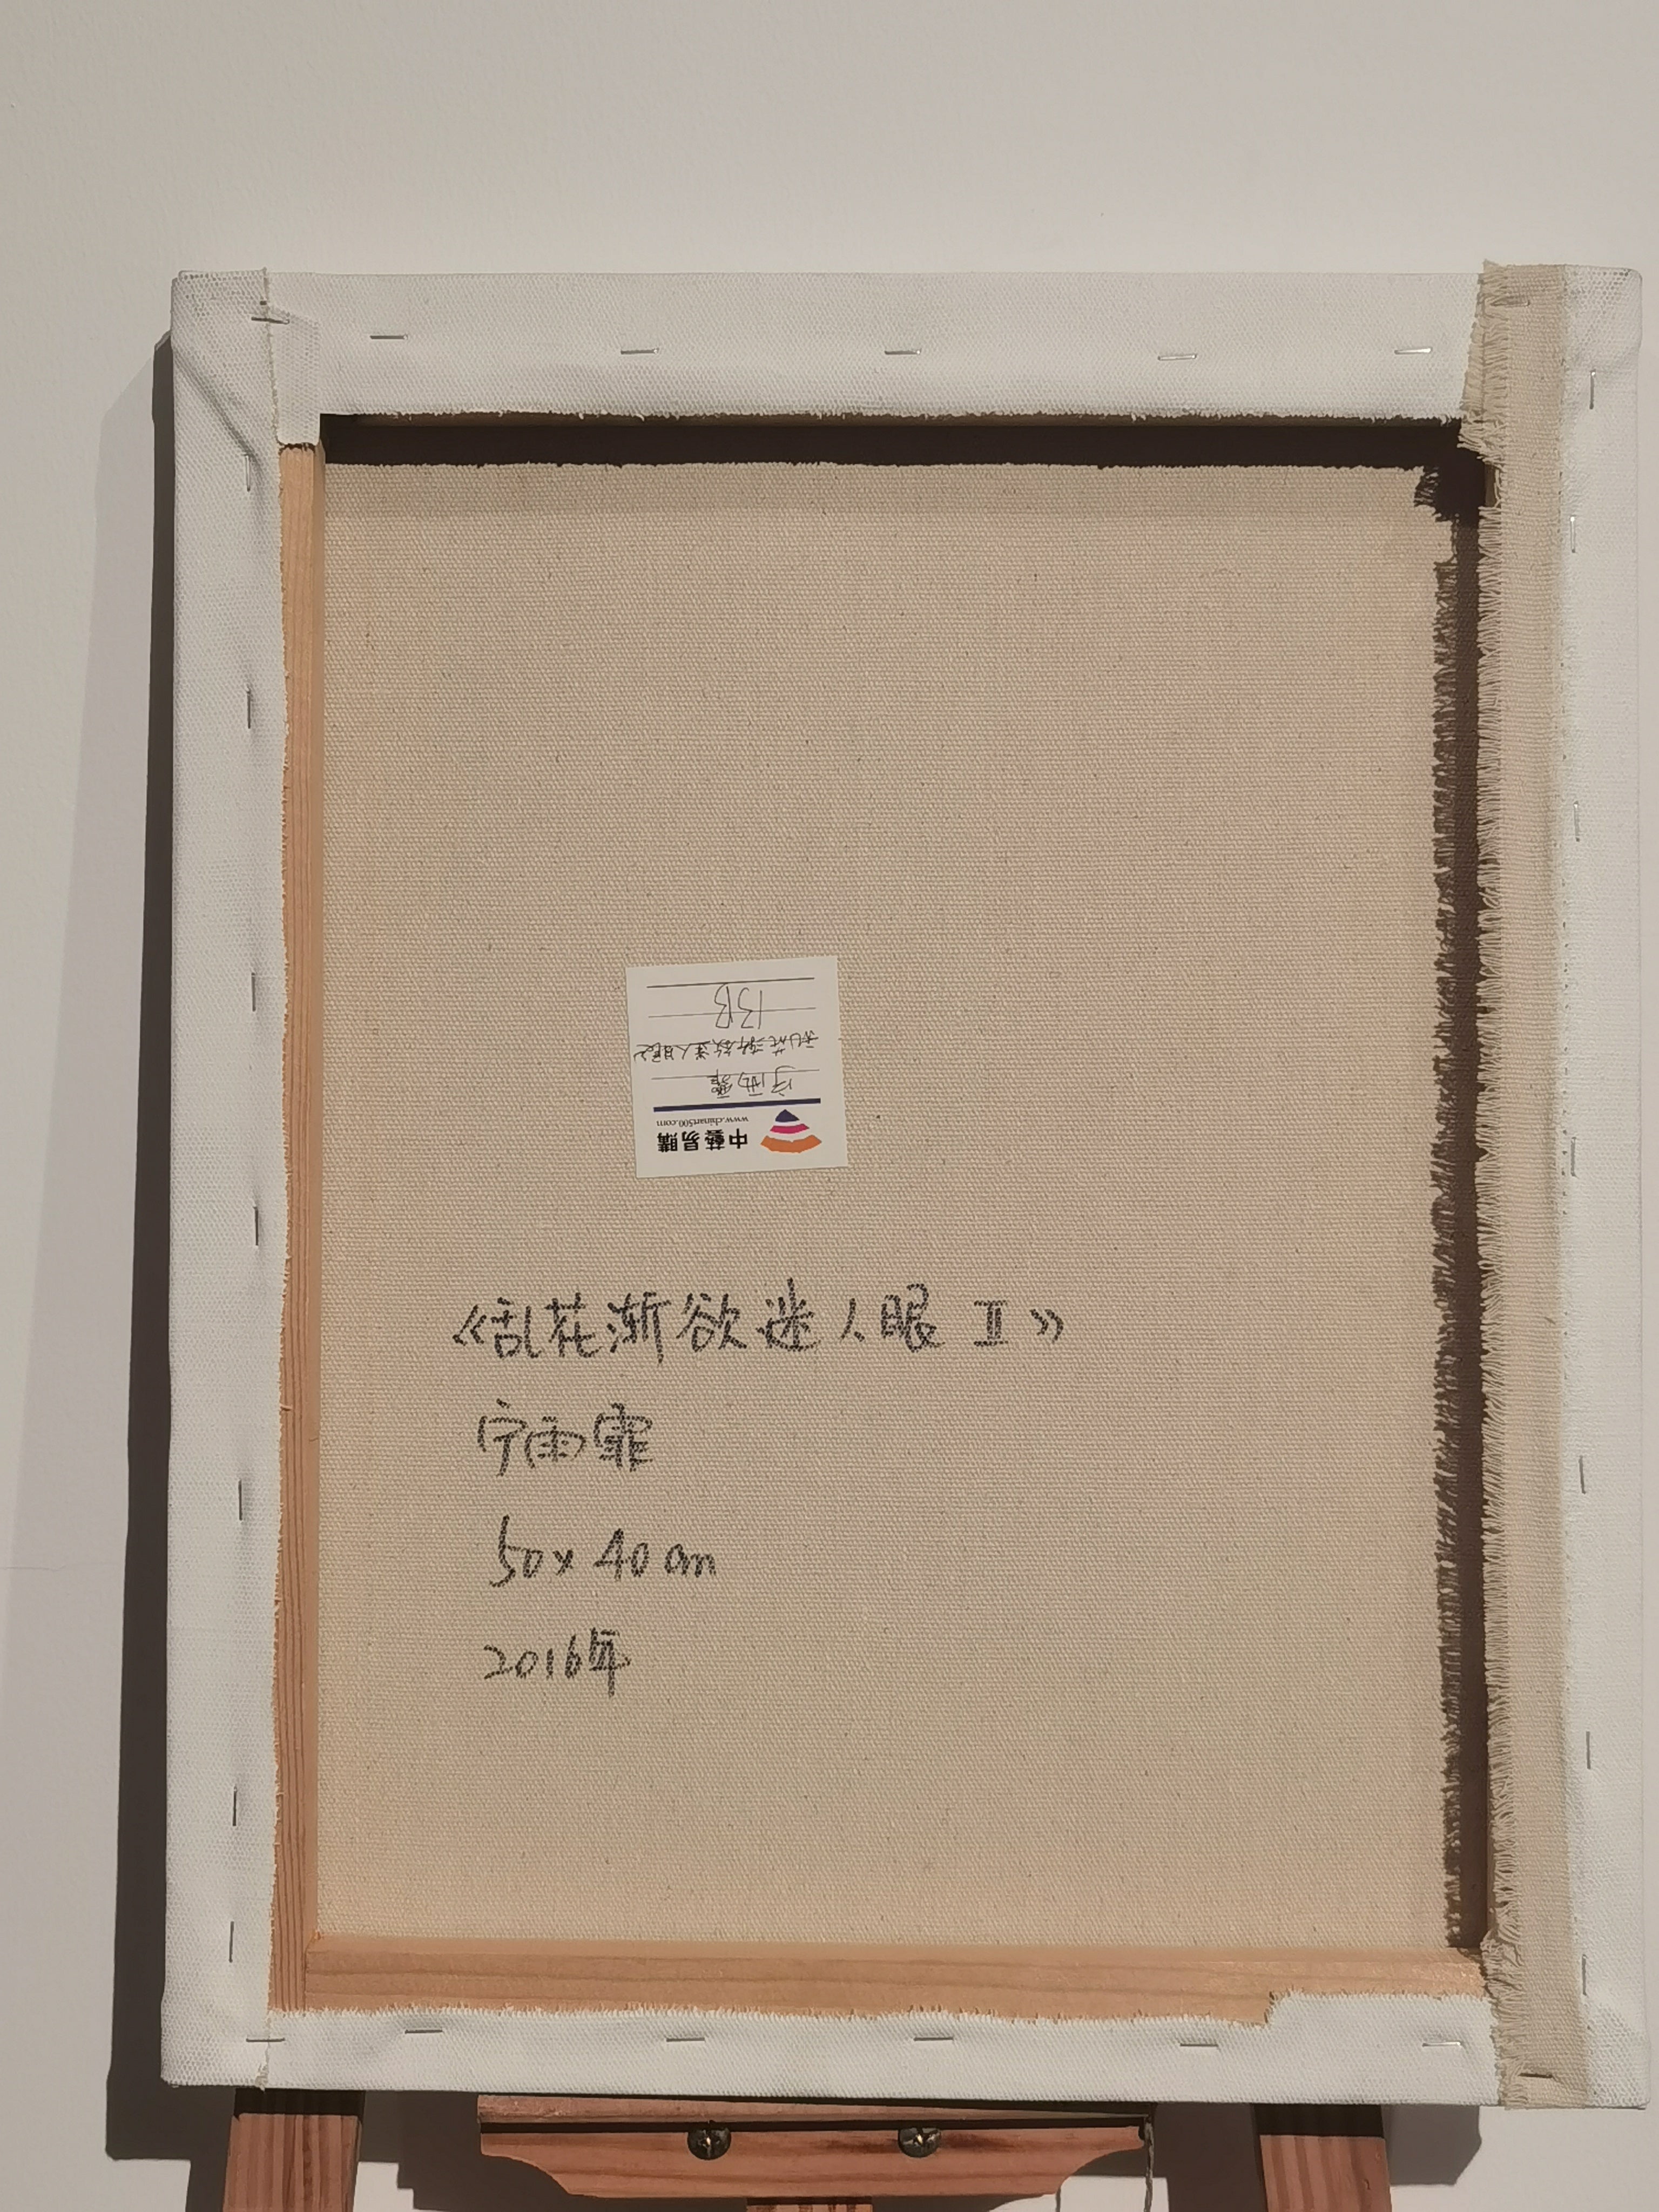 中藝易購
www.chinart500.com
宁雨霏
乱花渐欲迷人眼2
13B
《乱花渐欲迷人眼 Ⅱ》
宁雨霏
50x40cm
2016年